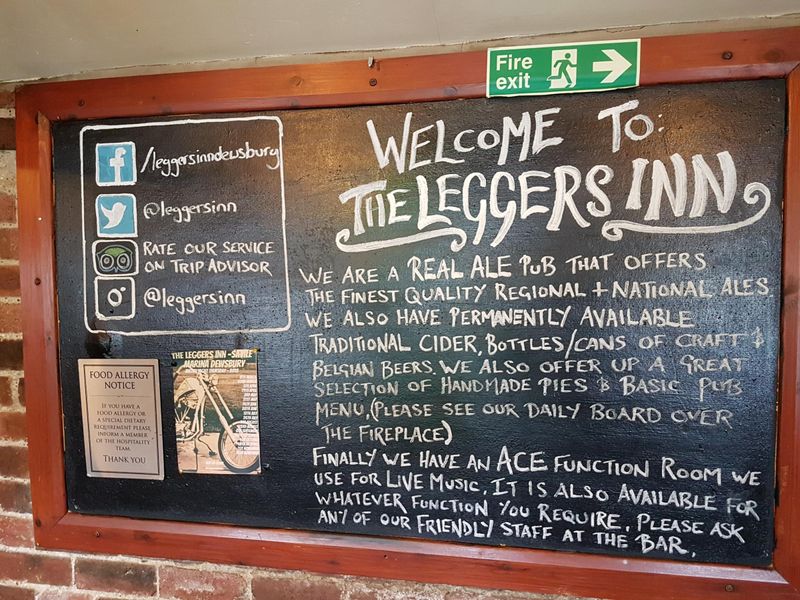 Fire
exit
/leggersinndewsbury
@leggersinn
RATE OUR SERVICE
ON TRIP ADVISOR
@leggersinn
WELCOME TO:
THE LEGGERS INN
WE ARE A REAL ALE PUB THAT OFFERS
THE FINEST QUALITY REGIONAL + NATIONAL ALES
WE ALSO HAVE PERMANENTLY AVAILABLE
TRADITIONAL CIDER, BOTTLES/CANS OF CRAFT &
BELGIAN BEERS. WE ALSO OFFER UP A GREAT
SELECTION OF HANDMADE PIES & BASIC PUB
MENU, (PLEASE SEE OUR DAILY BOARD OVER
THE FIREPLACE)
FINALLY WE HAVE AN ACE FUNCTION ROOM WE
USE FOR LIVE MUSIC. IT IS ALSO AVAILABLE FOR
WHATEVER FUNCTION YOU REQUIRE. PLEASE ASK
ANY OF OUR FRIENDLY STAFF AT THE BAR.
FOOD ALLERGY
NOTICE
IF YOU HAVE A
FOOD ALLERGY OR
A SPECIAL DIETARY
REQUIREMENT PLEASE
INFORM A MEMBER
OF THE HOSPITALITY
TEAM.
THANK YOU
THE LEGGERS INN - SAVILE
MARINA DEWSBURY